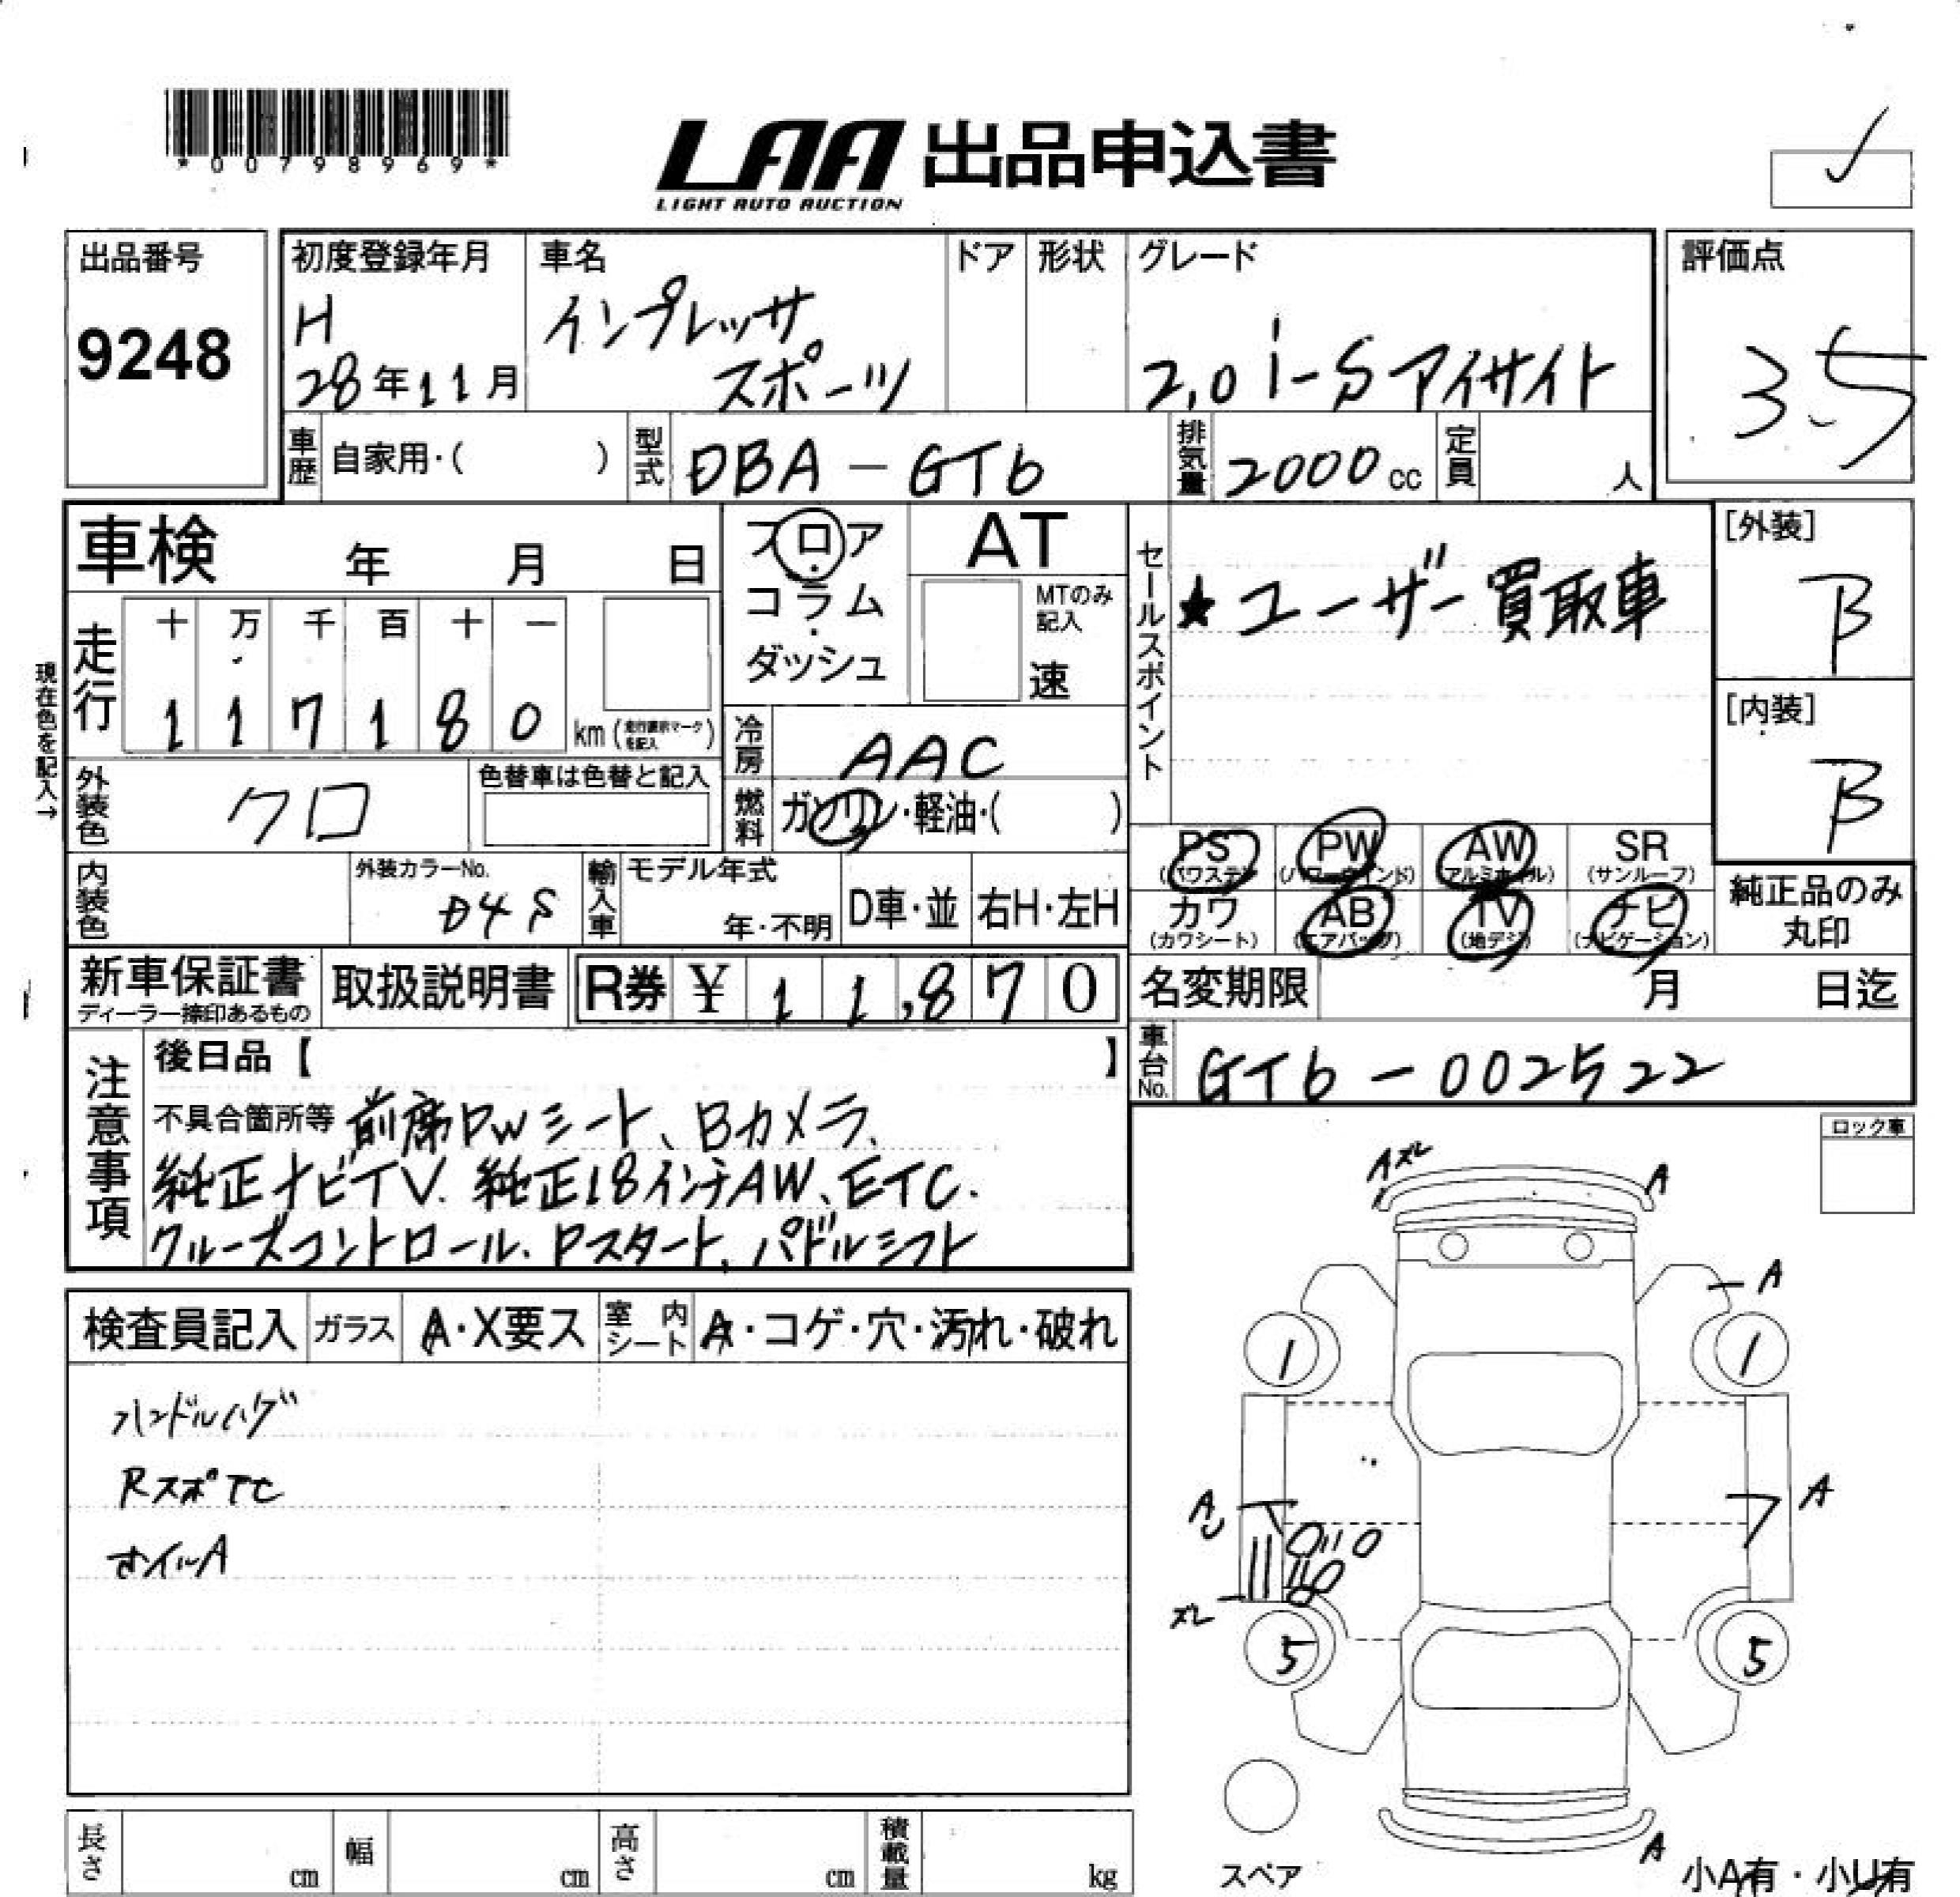 *00798969*
LAA 出品申込書
LIGHT AUTO AUCTION
出品番号
9248
初度登録年月
H
28年11月
車名
インプレッサ
スポーツ
ドア
形状
グレード
2.0 i-S アイサイト
評価点
3.5
車歴 自家用・( )
型式 DBA-GT6
排気量 2000 cc
定員 人
車検 年 月 日
フロア
・
コラム
・
ダッシュ
AT
MTのみ
記入
速
セールスポイント
★ユーザー買取車
[外装]
B
[内装]
B
現在色を記入→
走行
十 万 千 百 十 一
1 1 7 1 8 0 km
冷房 AAC
外装色 クロ
色替車は色替と記入
燃料 ガソリン・軽油・( )
PS PW AW SR
(パワステ) (パワーウインド) (アルミホイル) (サンルーフ)
カワ AB TV ナビ
(カワシート) (エアバッグ) (地デジ) (ナビゲーション)
純正品のみ
丸印
内装色
外装カラーNo.
D4S
輸入車
モデル年式
年・不明
D車・並
右H・左H
新車保証書
ディーラー捺印あるもの
取扱説明書
R券 ¥ 11,870
名変期限 月 日迄
車台No. GT6-002522
注意事項
後日品【 】
不具合箇所等 前席PWシート、Bカメラ、
純正ナビTV、純正18インチAW、ETC、
クルーズコントロール、Pスタート、パドルシフト
ロック車
検査員記入
ガラス A・X要ス
室内シート A・コゲ・穴・汚れ・破れ
ハンドルハゲ
RスポTC
ホイルA
Aズレ
A
A
1
1
A
A
U
ズレ
5
5
A
スペア
小A有・小U有
長さ cm
幅 cm
高さ cm
積載量 kg